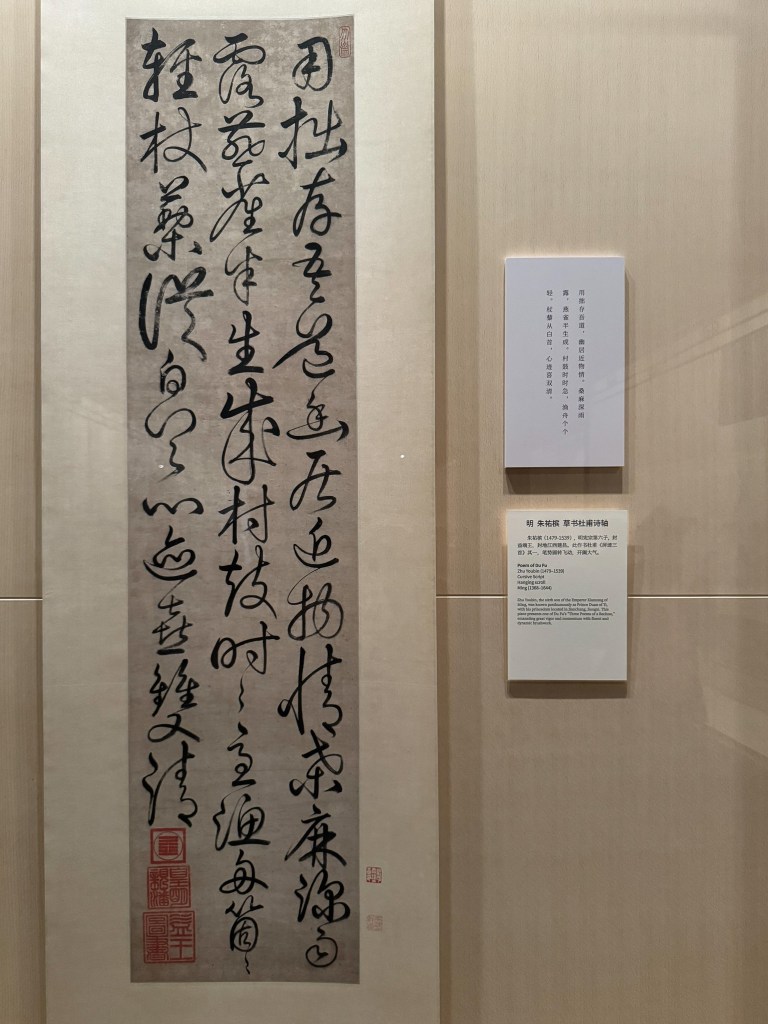 用拙存吾道幽居近物情桑麻深雨
露燕雀半生成村鼓時〻急漁舟箇〻
輕杖藜從白首心迹喜雙清
皇明親藩
用拙存吾道，幽居近物情。桑麻深雨
露，燕雀半生成。村鼓时时急，渔舟个个
轻。杖藜从白首，心迹喜双清。
明 朱祐槟 草书杜甫诗轴
朱祐槟（1479-1539），明宪宗第六子，封
益端王，封地江西建昌。此作书杜甫《屏迹三
首》其一，笔势圆转飞动，开阖大气。
Poem of Du Fu
Zhu Youbin (1479–1539)
Cursive Script
Hanging scroll
Ming (1368–1644)
Zhu Youbin, the sixth son of the Emperor Xianzong of
Ming, was known posthumously as Prince Duan of Yi,
with his princedom located in Jianchang, Jiangxi. This
piece presents one of Du Fu's "Three Poems of a Recluse,"
emanating great vigor and momentum with fluent and
dynamic brushwork.